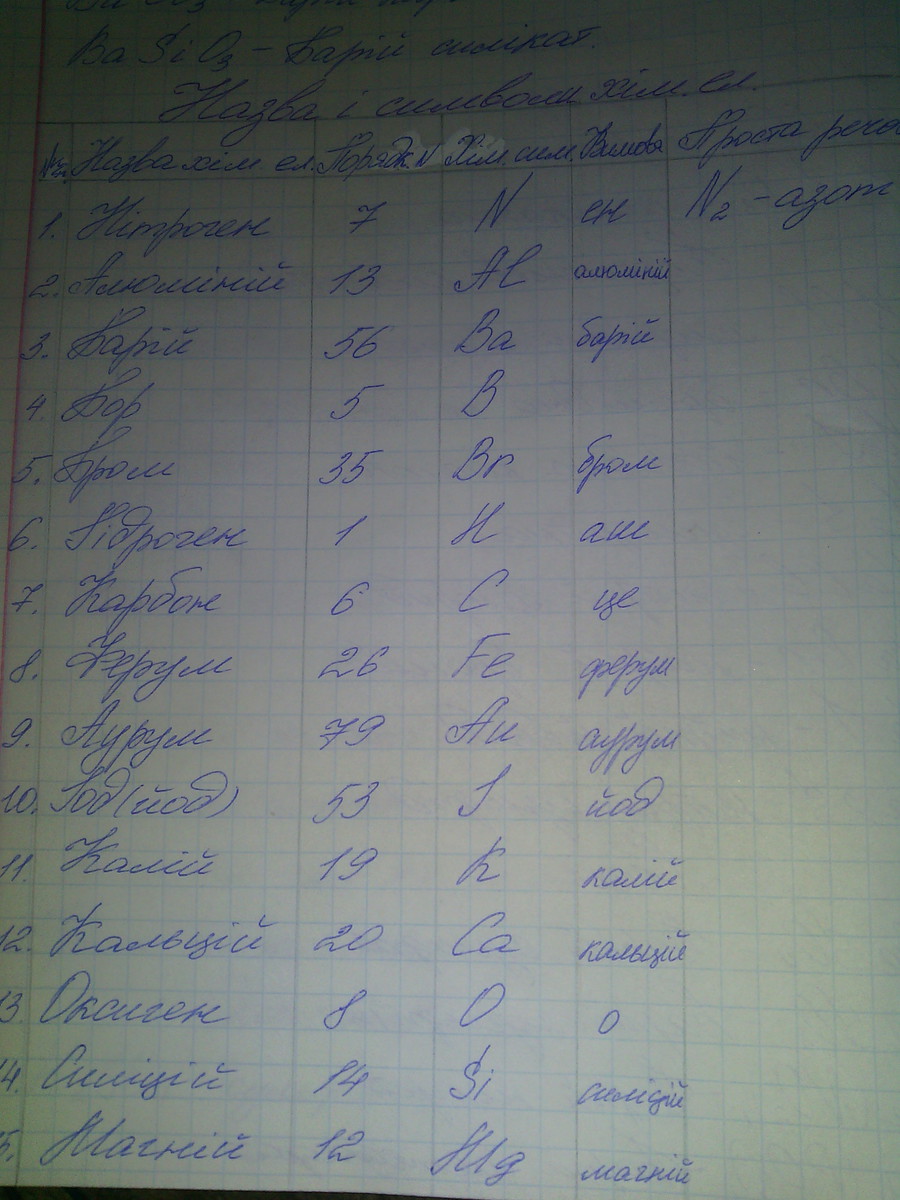 BaSiO3 – Барій силікат.
Назва і символи хім. ел.
№ Назва хім. ел. Порядк. N Хім. сим. Вимова Проста речо
1. Нітроген 7 N ен N2 – азот
2. Алюміній 13 Al алюміній
3. Барій 56 Ba барій
4. Бор 5 B
5. Бром 35 Br бром
6. Гідроген 1 H аш
7. Карбон 6 C це
8. Ферум 26 Fe ферум
9. Аурум 79 Au аурум
10. Іод (йод) 53 I йод
11. Калій 19 K калій
12. Кальцій 20 Ca кальцій
13. Оксиген 8 O о
14. Силіцій 14 Si силіцій
5. Магній 12 Mg магній